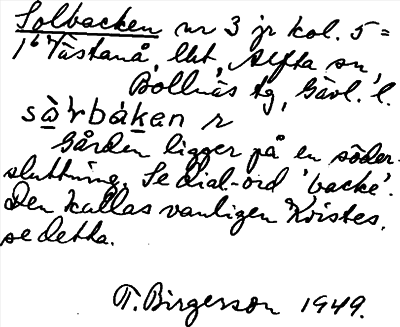 Solbacken nr 3 jr kol. 5 =
1⁶ Västanå, lht, Alfta sn,
Bollnäs tg, Gävl. l.
sà̱'rbáḵan r
Gården ligger på en söder-
sluttning. Se dial-ord 'backe'.
Den kallas vanligen Kvistes,
se detta.
T. Birgerson 1949.